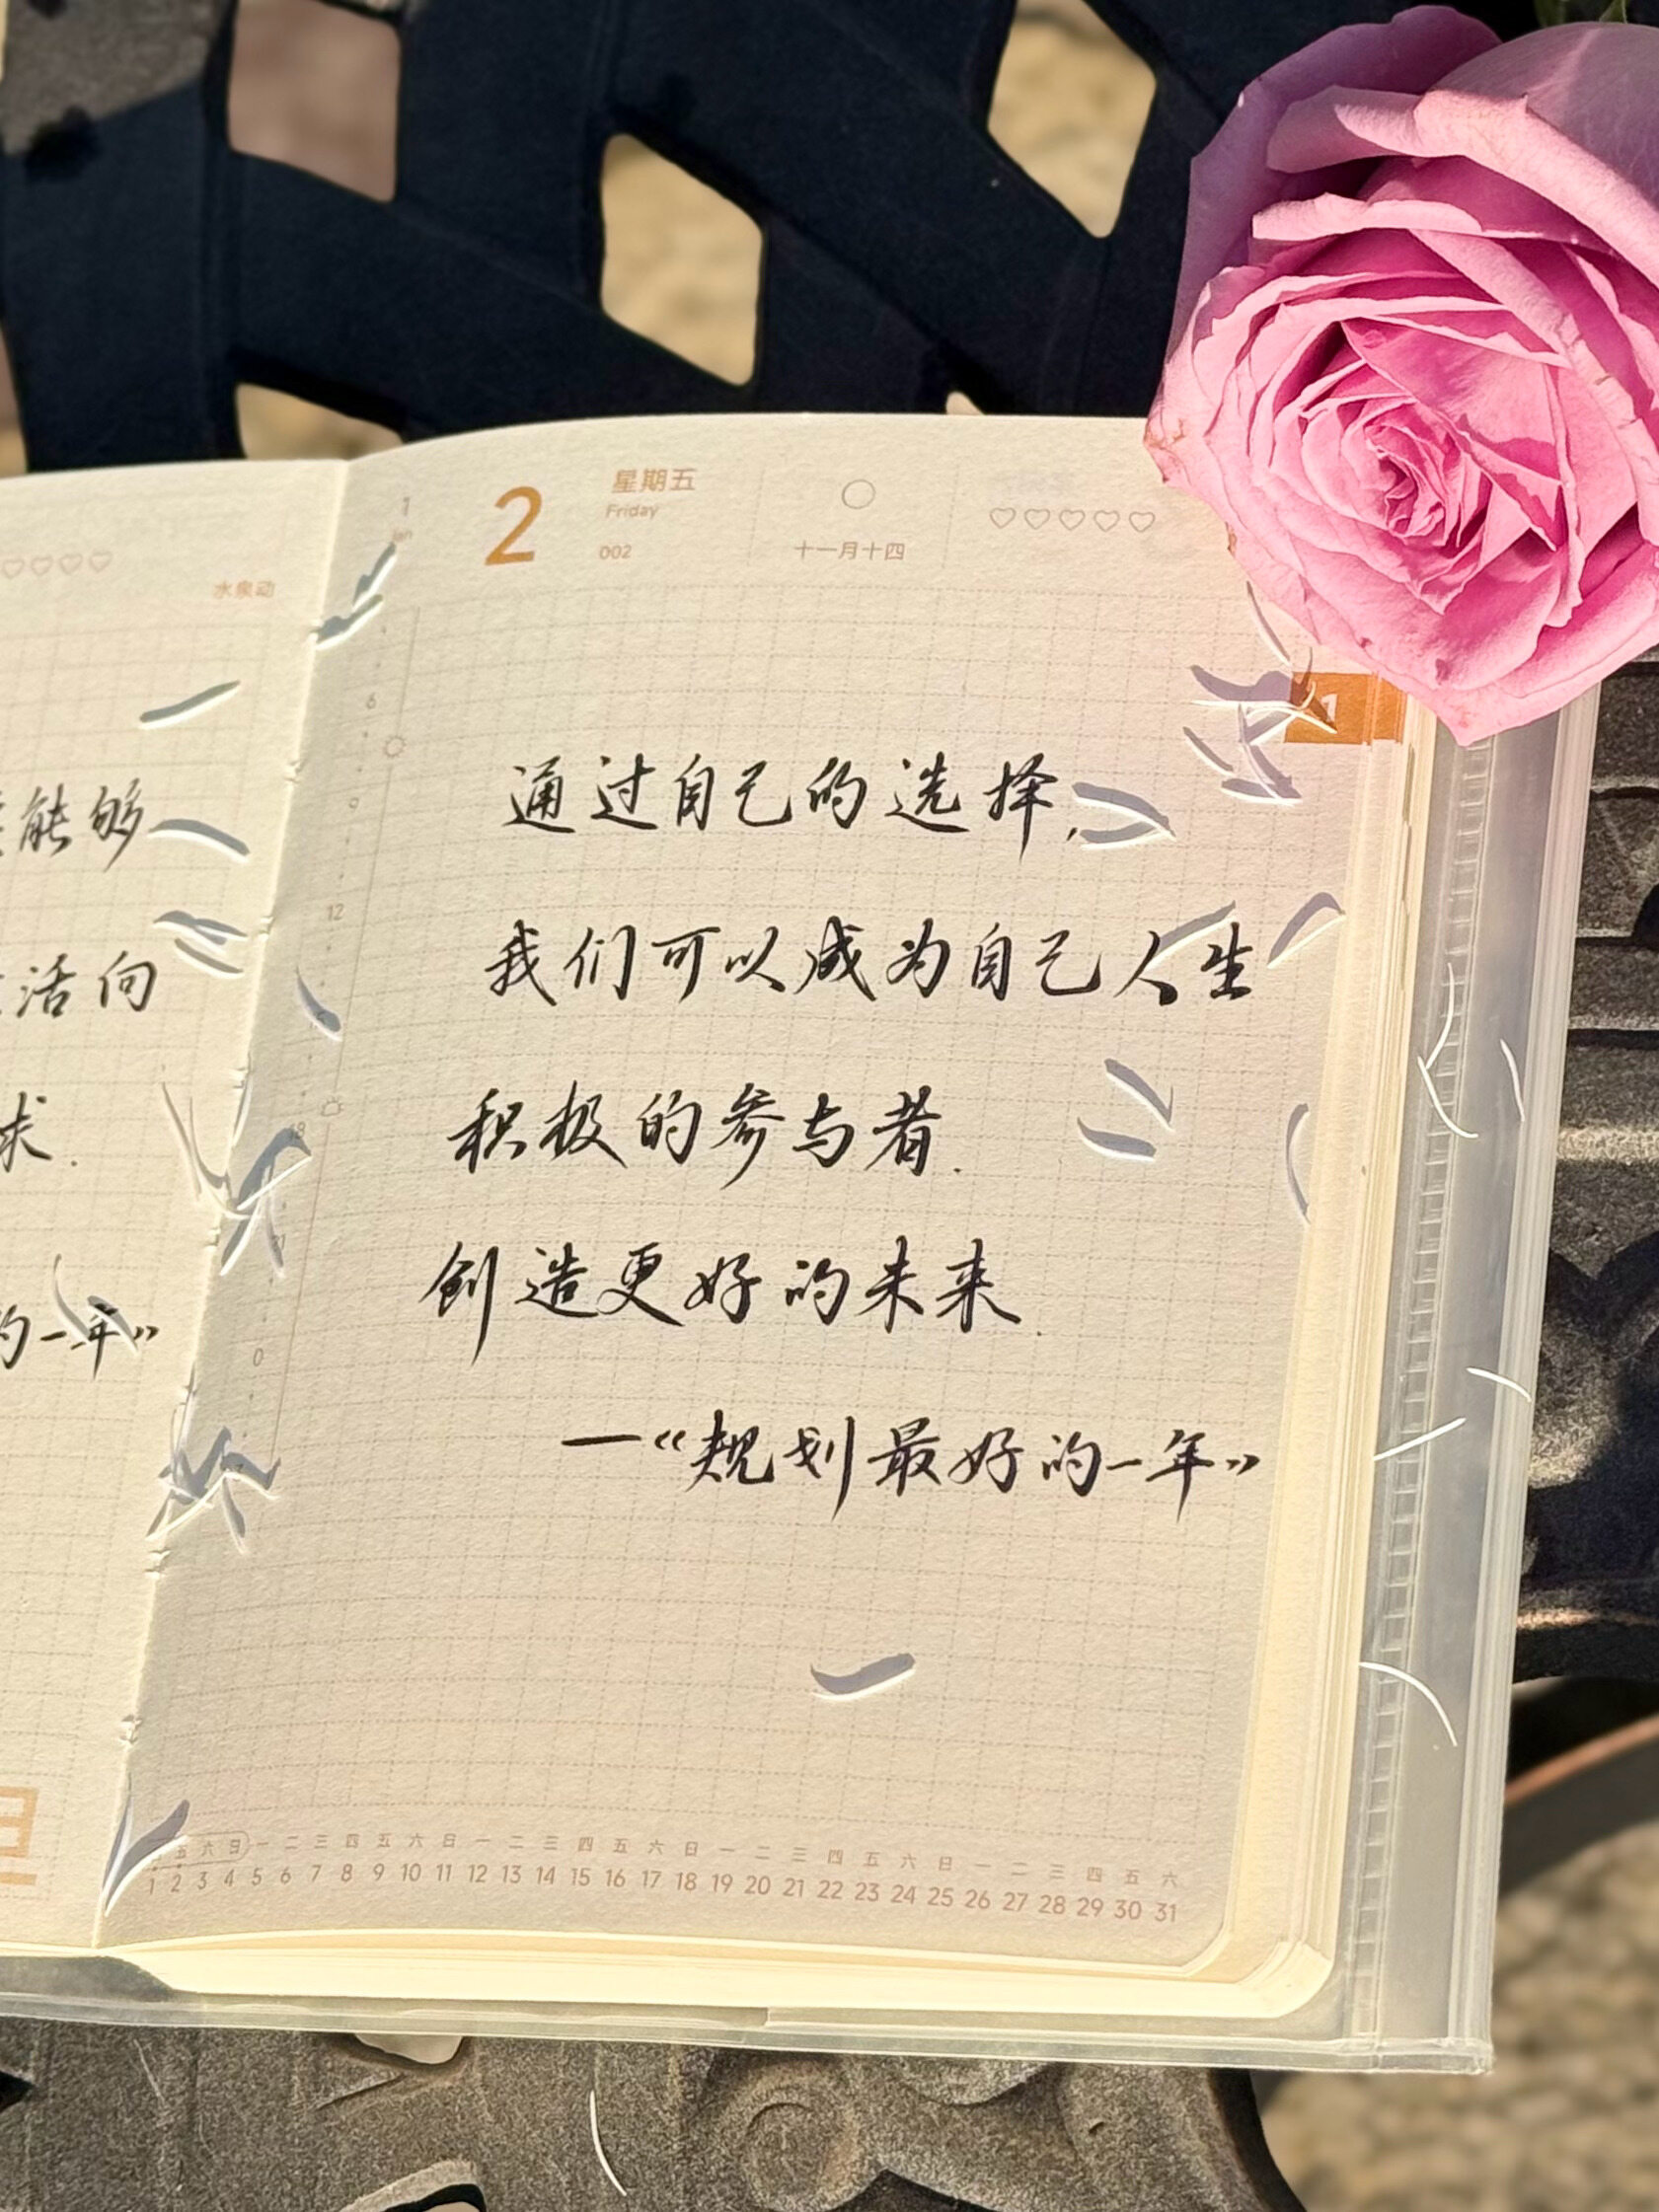 水泉动
能够
活向
求.
的一年》
旦
1
Jan
2
星期五
Friday
002
十一月十四
1
6
9
12
18
0
通过自己的选择,
我们可以成为自己人生
积极的参与者.
创造更好的未来.
—《规划最好的一年》
五 六 日 一 二 三 四 五 六 日 一 二 三 四 五 六 日 一 二 三 四 五 六 日 一 二 三 四 五 六
1 2 3 4 5 6 7 8 9 10 11 12 13 14 15 16 17 18 19 20 21 22 23 24 25 26 27 28 29 30 31